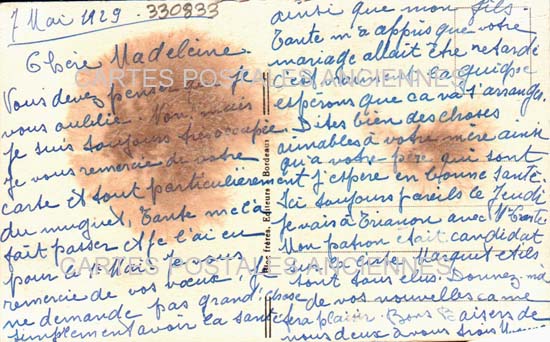 7 Mai 1929 - 330833
Chère Madeleine.
Vous devez penser que je
vous oublie. Non, mais
je suis toujours très occupée.
Je vous remercie de votre
carte et tout particulièrement
du muguet, Tante me l'a
fait passer et je l'ai eu
pour le 1er Mai. Je vous
remercie de vos voeux. Je
ne demande pas grand'chose
simplement avoir la santé
ainsi que mon fils.
Tante m'a appris que votre
mariage allait être retardé
c'est vraiment la guigne
espérons que ca va s'arranger.
Dites bien des choses
aimables à votre mère ainsi
qu'à votre père qui sont
j'espère en bonne santé.
Ici toujours pareils le Jeudi
je vais à Trianon avec
Mon patron était candidat
sur la liste Marquet et ils
sont tous elus. Donnez-moi
de vos nouvelles ca me
fera plaisir. Bons Baisers de
nous deux à vous trois
Bloc frères, Editeurs - Bordeaux
CARTES POSTALES ANCIENNES
CARTES POSTALES ANCIENNES